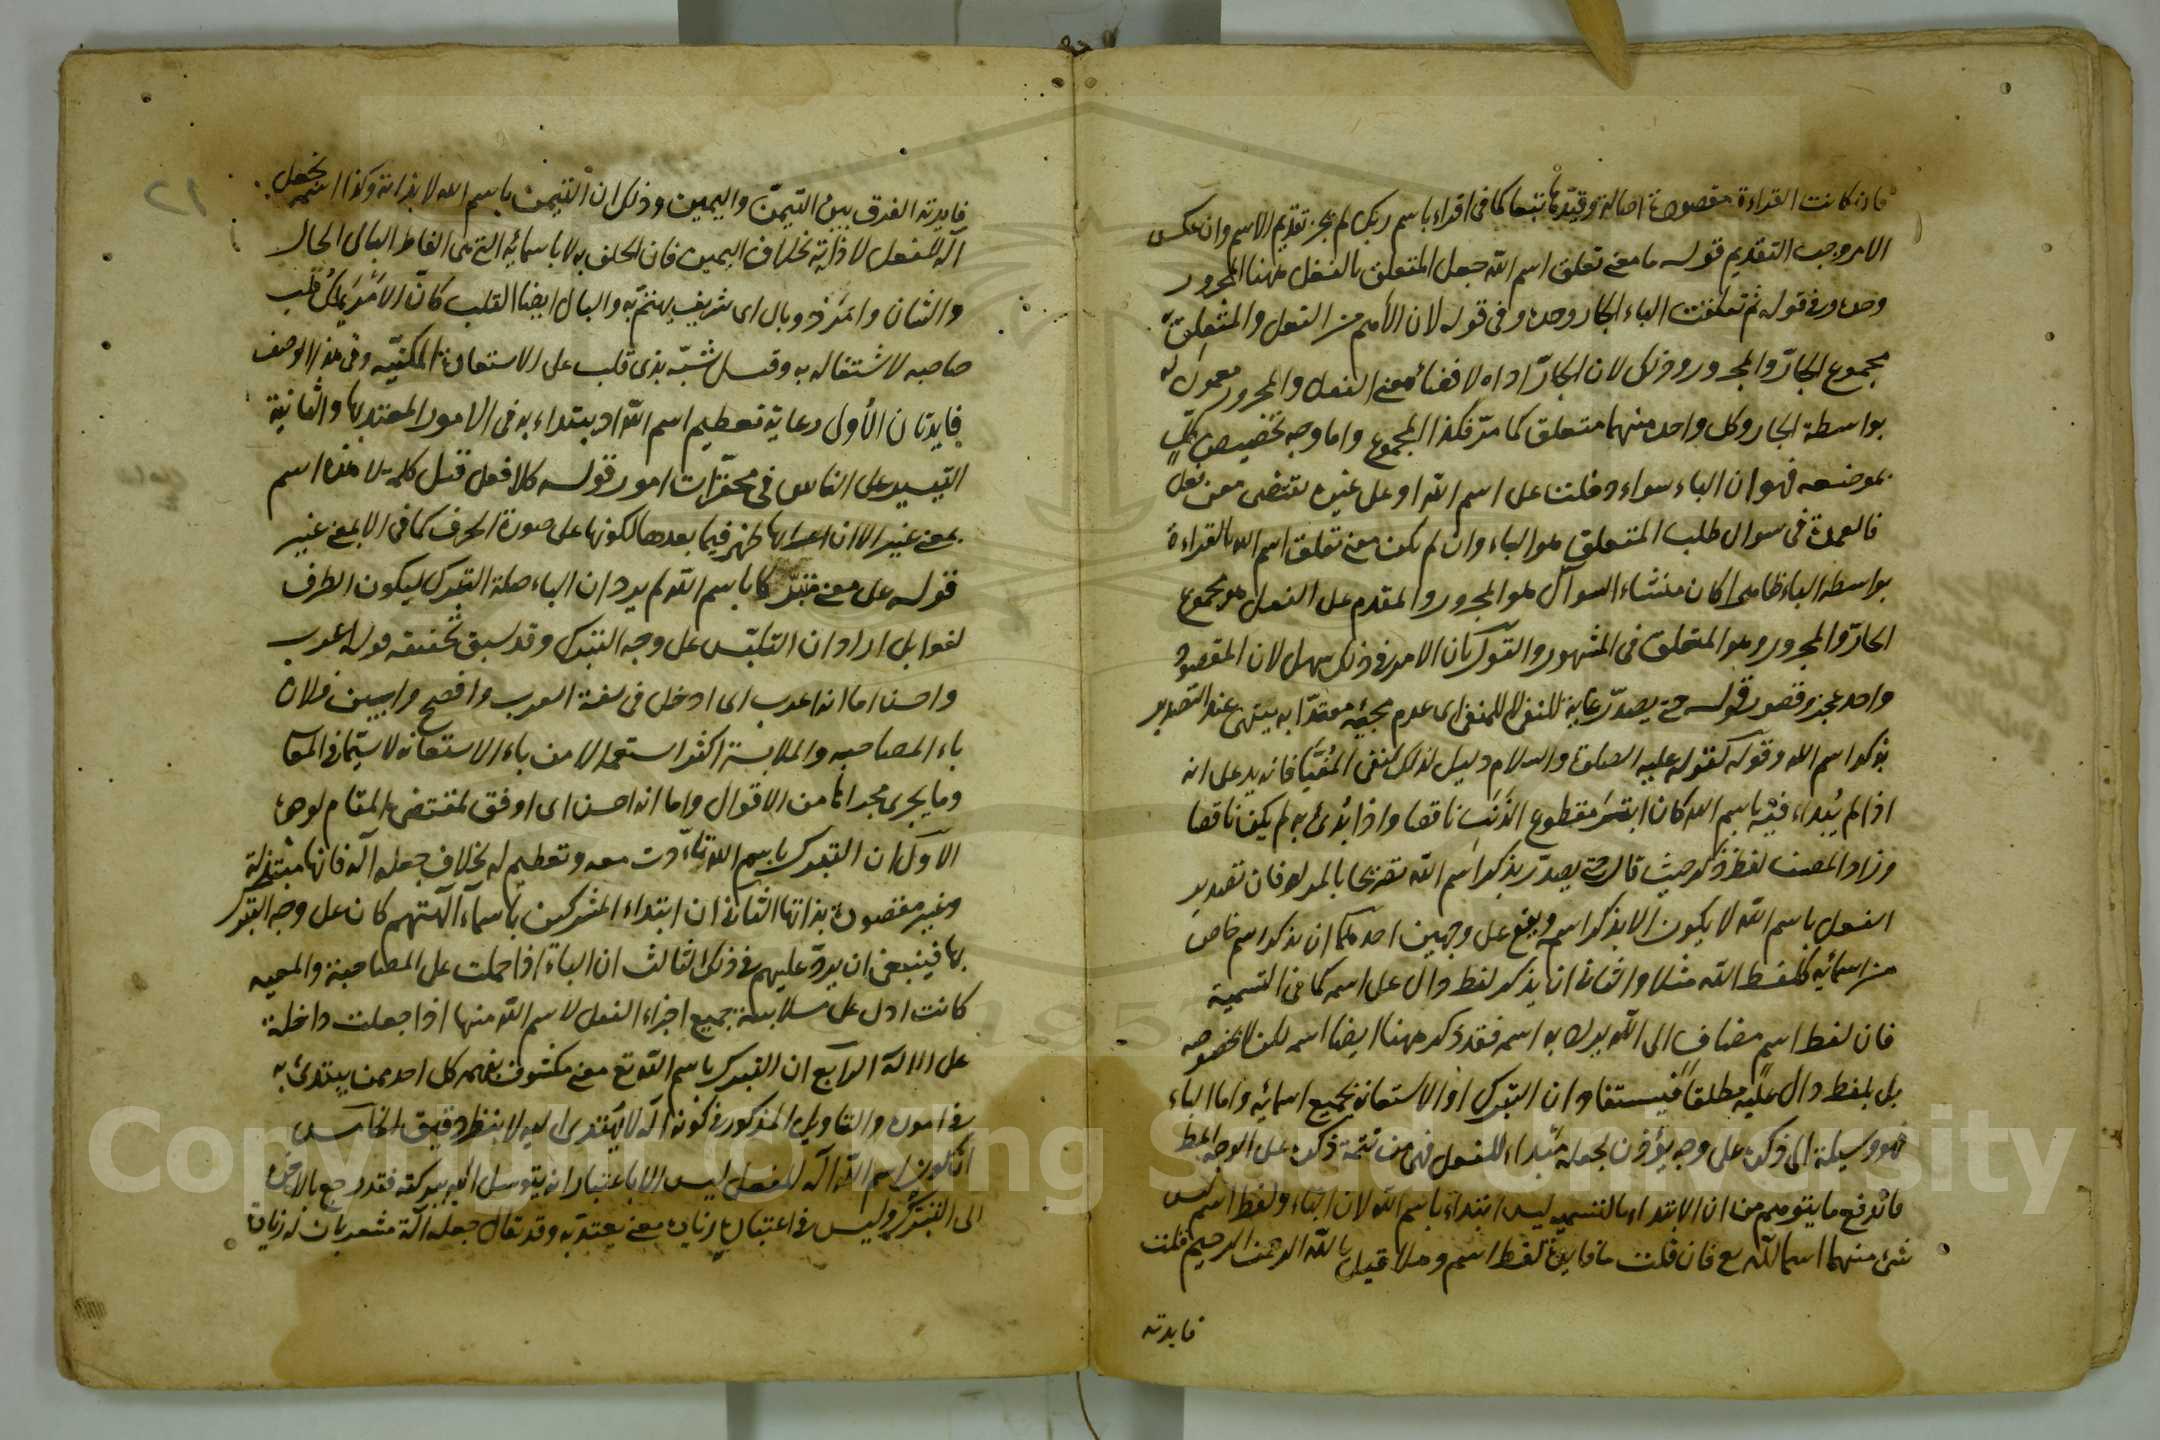 فان كانت القراءة مقصودة اصالة وقيدها تبعا كما في اقراء باسم ربك لم يجز تقديم الاسم وان عكس
الامر وجب التقديم قوله ما معنى تعلق اسم الله جعل المتعلق بالفعل ههنا المجرور
وحده وفي قوله ثم تعلقت الباء الجار وحده وفي قوله لان الأهم من الفعل والمتعلق به
مجموع الجارّ والمجرور وذلك لان الجارّ اداة لافضاء معنى الفعل والمجرور معمول له
بواسطة الجار وكل واحد منهما متعلق كما مرّ فكذا المجموع واما وجه تخصيص كلٍّ
بموضعه فهو ان الباء سواء دخلت على اسم الله او على غيره تقتضى معنى فعل
فالعمدة في سوال طلب المتعلق هو الباء وان لم يكن معنى تعلق اسم الله بالقراءة
بواسطة الباء ظاهرا كان منشاء السوآل هو المجرور والمقدم على الفعل هو مجموع
الجارّ والمجرور وهو المتعلق في المشهور والتحرير كان الامر في ذلك سهل لان المقصود
واحد عجز وقصور قوله حتى يصدّر غاية للنفى لا للمنفى اى عدم مجيئه معتدّا به ينتهى عند التصدير
بذكر اسم الله وقوله كقوله عليه الصلوة والسلام دليل لذلك النفى المُغيّا فانه يدل على انه
اذا لم يُبداء فيه باسم الله كان ابتر مقطوع الذَنَب ناقصا واذا بُدئ به لم يكن ناقصا
وزاد المصنف لفظ ذكر حيث قال حتى يصدّر بذكر اسم الله تصريحا بالمراد فان تصدير
الفعل باسم الله لا يكون الا بذكر اسمه ويقع على وجهين احدهما ان يذكر اسم خاص
من اسمائه كلفظ الله مثلا والثانى ان يذكر لفظ دال على اسمه كما في التسمية
فان لفظ اسم مضاف الى الله يراد به اسمه فقد ذكر ههنا ايضا اسمه لكن لا بخصوصه
بل بلفظ دال عليه مطلقا فيستفاد ان التبرك او الاستعانة بجميع اسمائه واما الباء
فهو وسيلة الى ذكره على وجه يؤذن بجعله مبداء للفعل فهى من تتمة ذكره على الوجه المط
فاندفع ما يتوهم من ان الابتداء بالتسمية ليس ابتداء باسم الله لان الباء ولفظ اسم ليس
شئ منهما اسما لله تع فان قلت ما فايدة لفظ اسم وهلا قيل بالله الرحمن الرحيم قلت
فايدته
١٢
فايدته الفرق بين التيمّن واليمين وذلك ان التيمن باسم الله لا بذاته وكذا اسمه يجعل
آلة للفعل لا ذاته بخلاف اليمين فان الحلف به لا باسمائه التى هى الفاظ البال الحال
والشان وامر ذو بال اى شريف يهتمّ به والبال ايضا القلب كانّ الأمر يملك قلب
صاحبه لاشتغاله به وقيل شبّه بذى قلب على الاستعارة المكنيّة وفي هذا الوصف
فايدتان الأولى رعاية تعظيم اسم الله اذ يبتداء به في الامور المعتد بها والثانية
التيسير على الناس في محقّرات امور قوله كلا فعل قيل كلمة لا هذه اسم
بمعنى غير الا ان اعرابها ظهر فيما بعدها لكونها على صورة الحرف كما في الا بمعنى غير
قوله على معنى متبرّكا باسم الله لم يرد ان الباء صلة التبرك ليكون الظرف
لغوا بل اراد ان التلبّس على وجه التبرك وقد سبق تحقيقه قوله اعرب
واحسن اما انه اعرب اى ادخل في لغة العرب وافصح وابين فلان
باء المصاحبة والملابسة اكثر استعمالا من باء الاستعانة لا سيّما في المعاني
وما يجرى مجراها من الاقوال واما انه احسن اى اوفق لمقتضى المقام لوجوه
الأول ان التبرك باسم الله تأدّب معه وتعظيم له بخلاف جعله آلة فانها مبتذلة
وغير مقصودة بذاتها الثانى ان ابتداء المشركين باسماء آلهتهم كان على وجه التبرك
بها فينبغى ان يردّ عليهم في ذلك الثالث ان الباء اذا حملت على المصاحبة والمعية
كانت ادل على ملابسة جميع اجزاء الفعل لاسم الله منها اذا جعلت داخلة
على الالة الرابع ان التبرك باسم الله تع معنى مكشوف يفهمه كل احد ممن يبتدئ به
في اموره والتاويل المذكور في كونه آلة لا يهتدى اليه الا بنظر دقيق الخامس
ان كون اسم الله آلة للفعل ليس الا باعتبار انه يتوسل اليه ببركته فقد رجع بالاخرة
الى التبرك وليس في اعتباره زيادة معنى يعتدّ به وقد يقال جعله آلة مشعر بان له زيادة